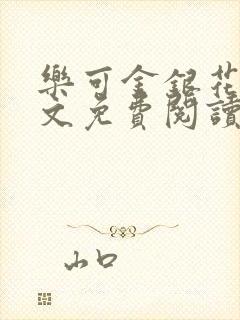 樂可金銀花
文免費閱讀
山口